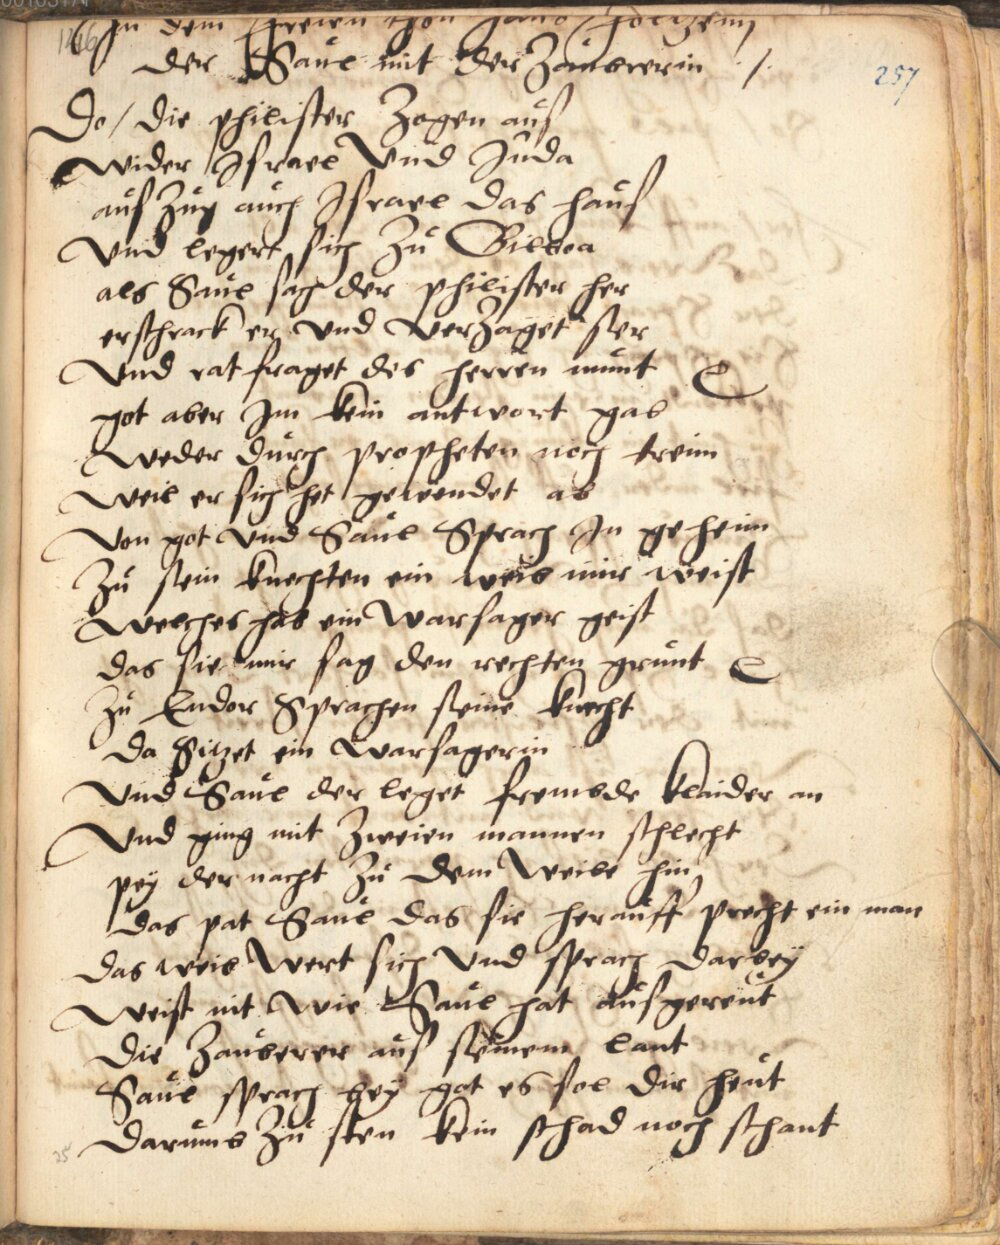 In dem freien thon Hans Foltzenn
der Saúl mit der Zaúbrerin /.
257
Do / die philister Zogen aús
wider Israel Und Júda
aús Zúg aúch Israel das haús
Und legert sich Zú Gilboa
als Saúl sach der philister her
erschrack er Und VerZaget ser
Und rat fraget des herren múnt
got aber Im kein antwort gab
Weder dúrch propheten noch treim
Weil er sich het gewendet ab
Von got Und Saúl Sprach In geheim
Zú sein knechten ein weib mir weist
Welches hab ein Warsager geist
das sie mir sag den rechten grúnt
Zú Endor Sprachen seine knecht
Da Sitzet ein Warsagerin
Und Saúl der leget frembde klaider an
Und ging mit Zweien mannen schlecht
pey der nacht Zú dem Weibe hin
das pat Saúl das sie heraúff precht ein man
das weib Wert sich Und sprach darbey
Weist nit Wie Saúl hat aúsgereút
die Zaúberer aús seinem lant
Saúl sprach bey got es sol dir heút
darúmb Zú sten kein schad noch schant
25